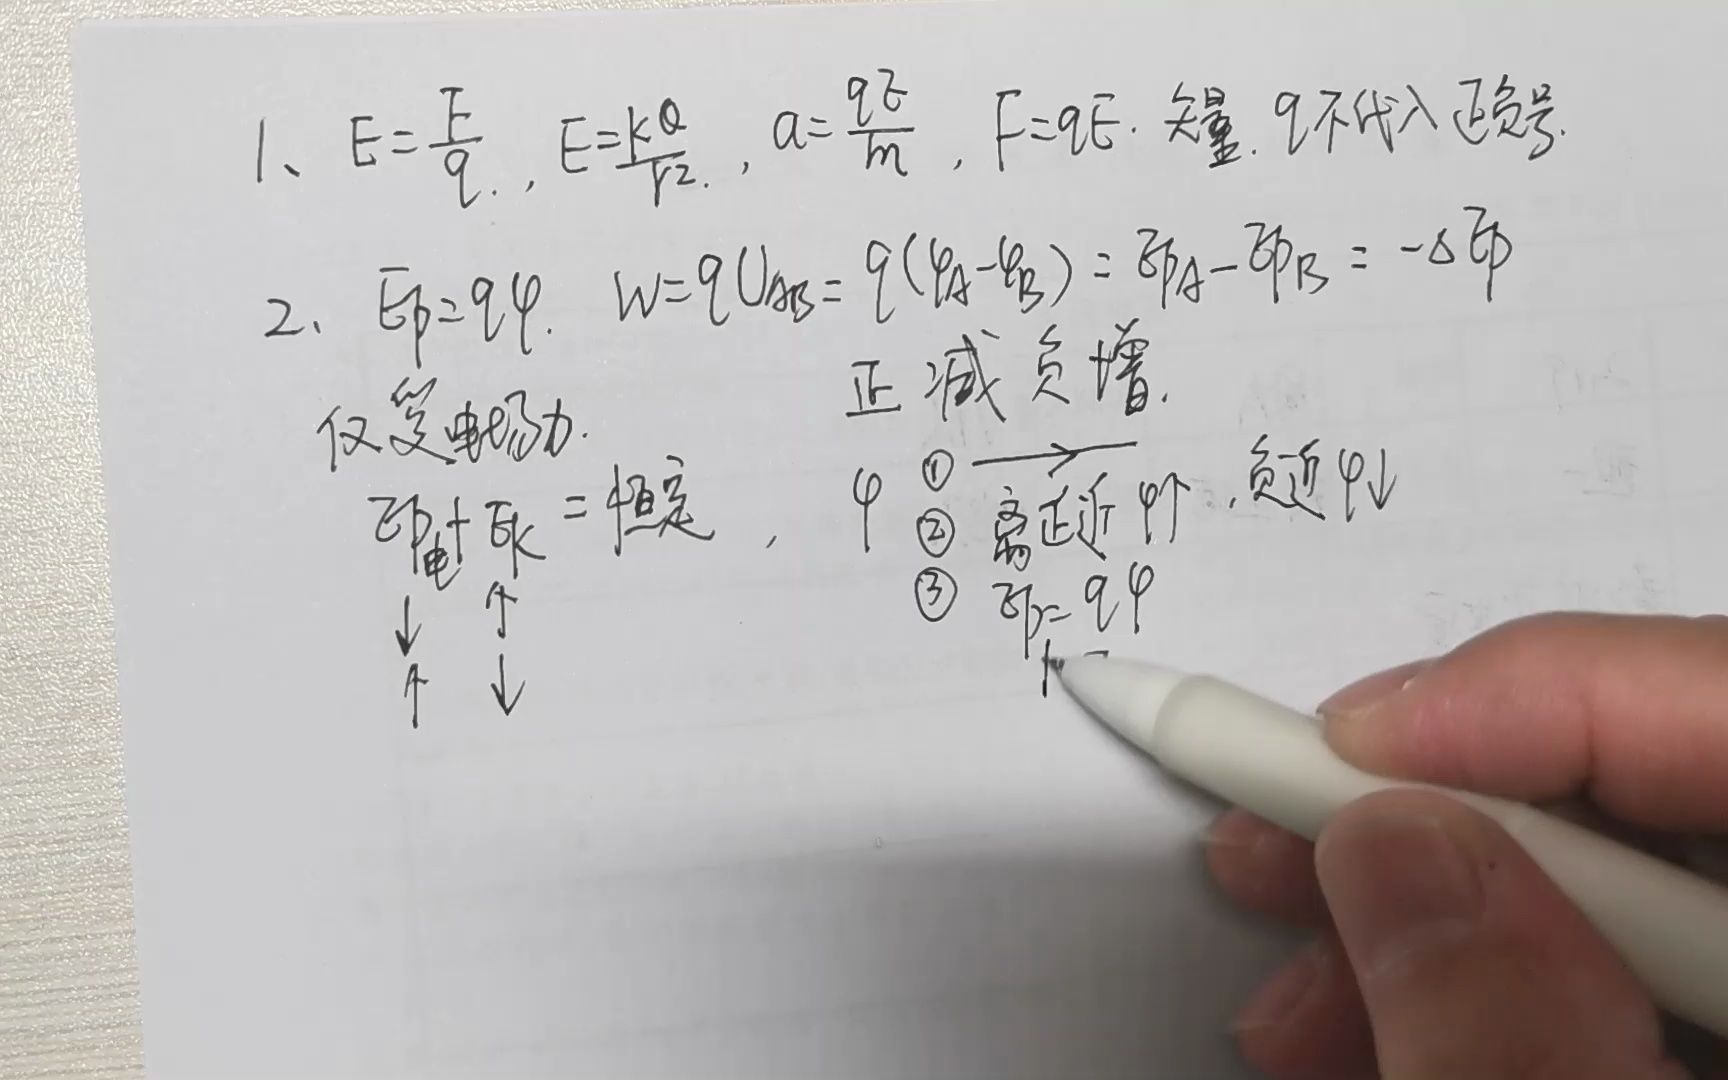 1、 E=F/q., E=kQ/r²., a=qE/m, F=qE. 矢量. q不代入正负号.
2、 Ep=qφ. W=qUAB=q(φA-φB)=EpA-EpB=-ΔEp
正减负增.
仅受电场力.
Ep电+Ek=恒定,
↓ ↑
↑ ↓
φ ① →
② 离正近φ↑,负近φ↓
③ Ep=qφ